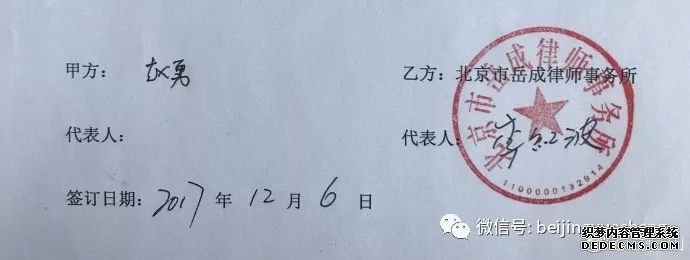 甲方: 赵勇 乙方: 北京市岳成律师事务所
北京市岳成律师事务所
代表人: 代表人:
1100000132914
签订日期: 2017 年 12 月 6 日
微信号: beijin
织梦内容管理系统
DEDECMS.COM